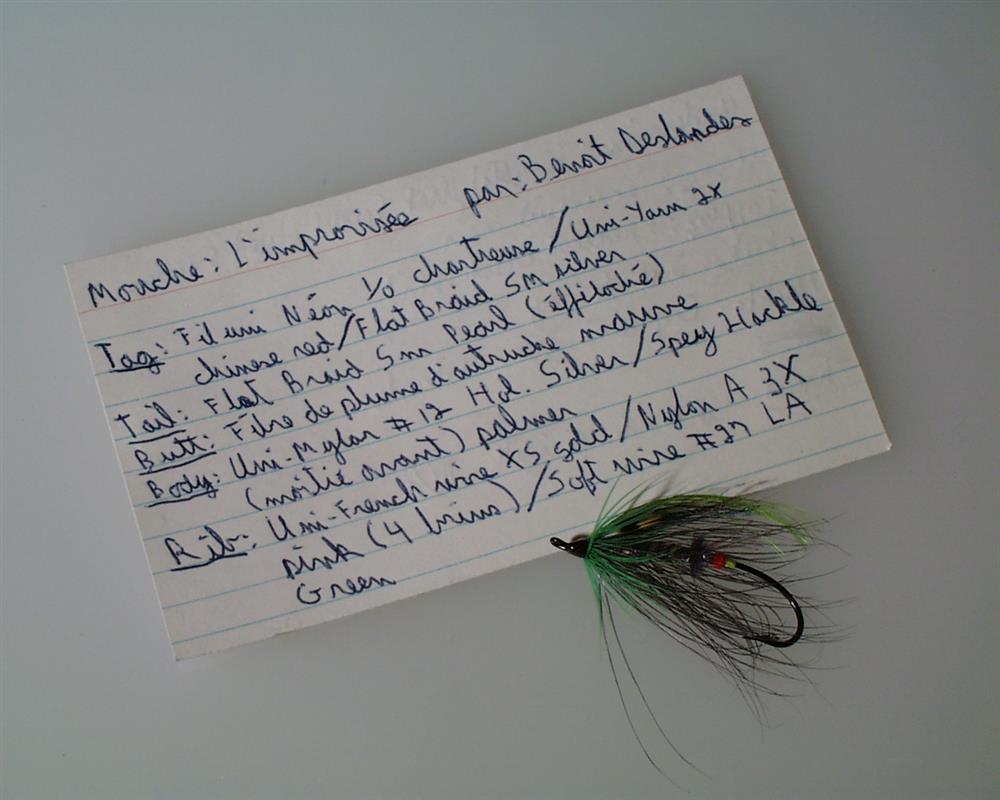 Mouche: L'improvisée par: Benoit Deslandes
Tag: Fil uni Néon 1/0 chartreuse/Uni-Yarn 2X
chinese red/Flat Braid 5m silver
Tail: Flat Braid 5mm Pearl (éffiloché)
Butt: Fibre de plume d'autruche mauve
Body: Uni-Mylar #12 Hol. Silver/Spey Hackle
(moitié avant) palmer
Rib: Uni-French wire XS gold/Nylon A 3X
pink (4 brins)/Soft wire #27 LA
Green